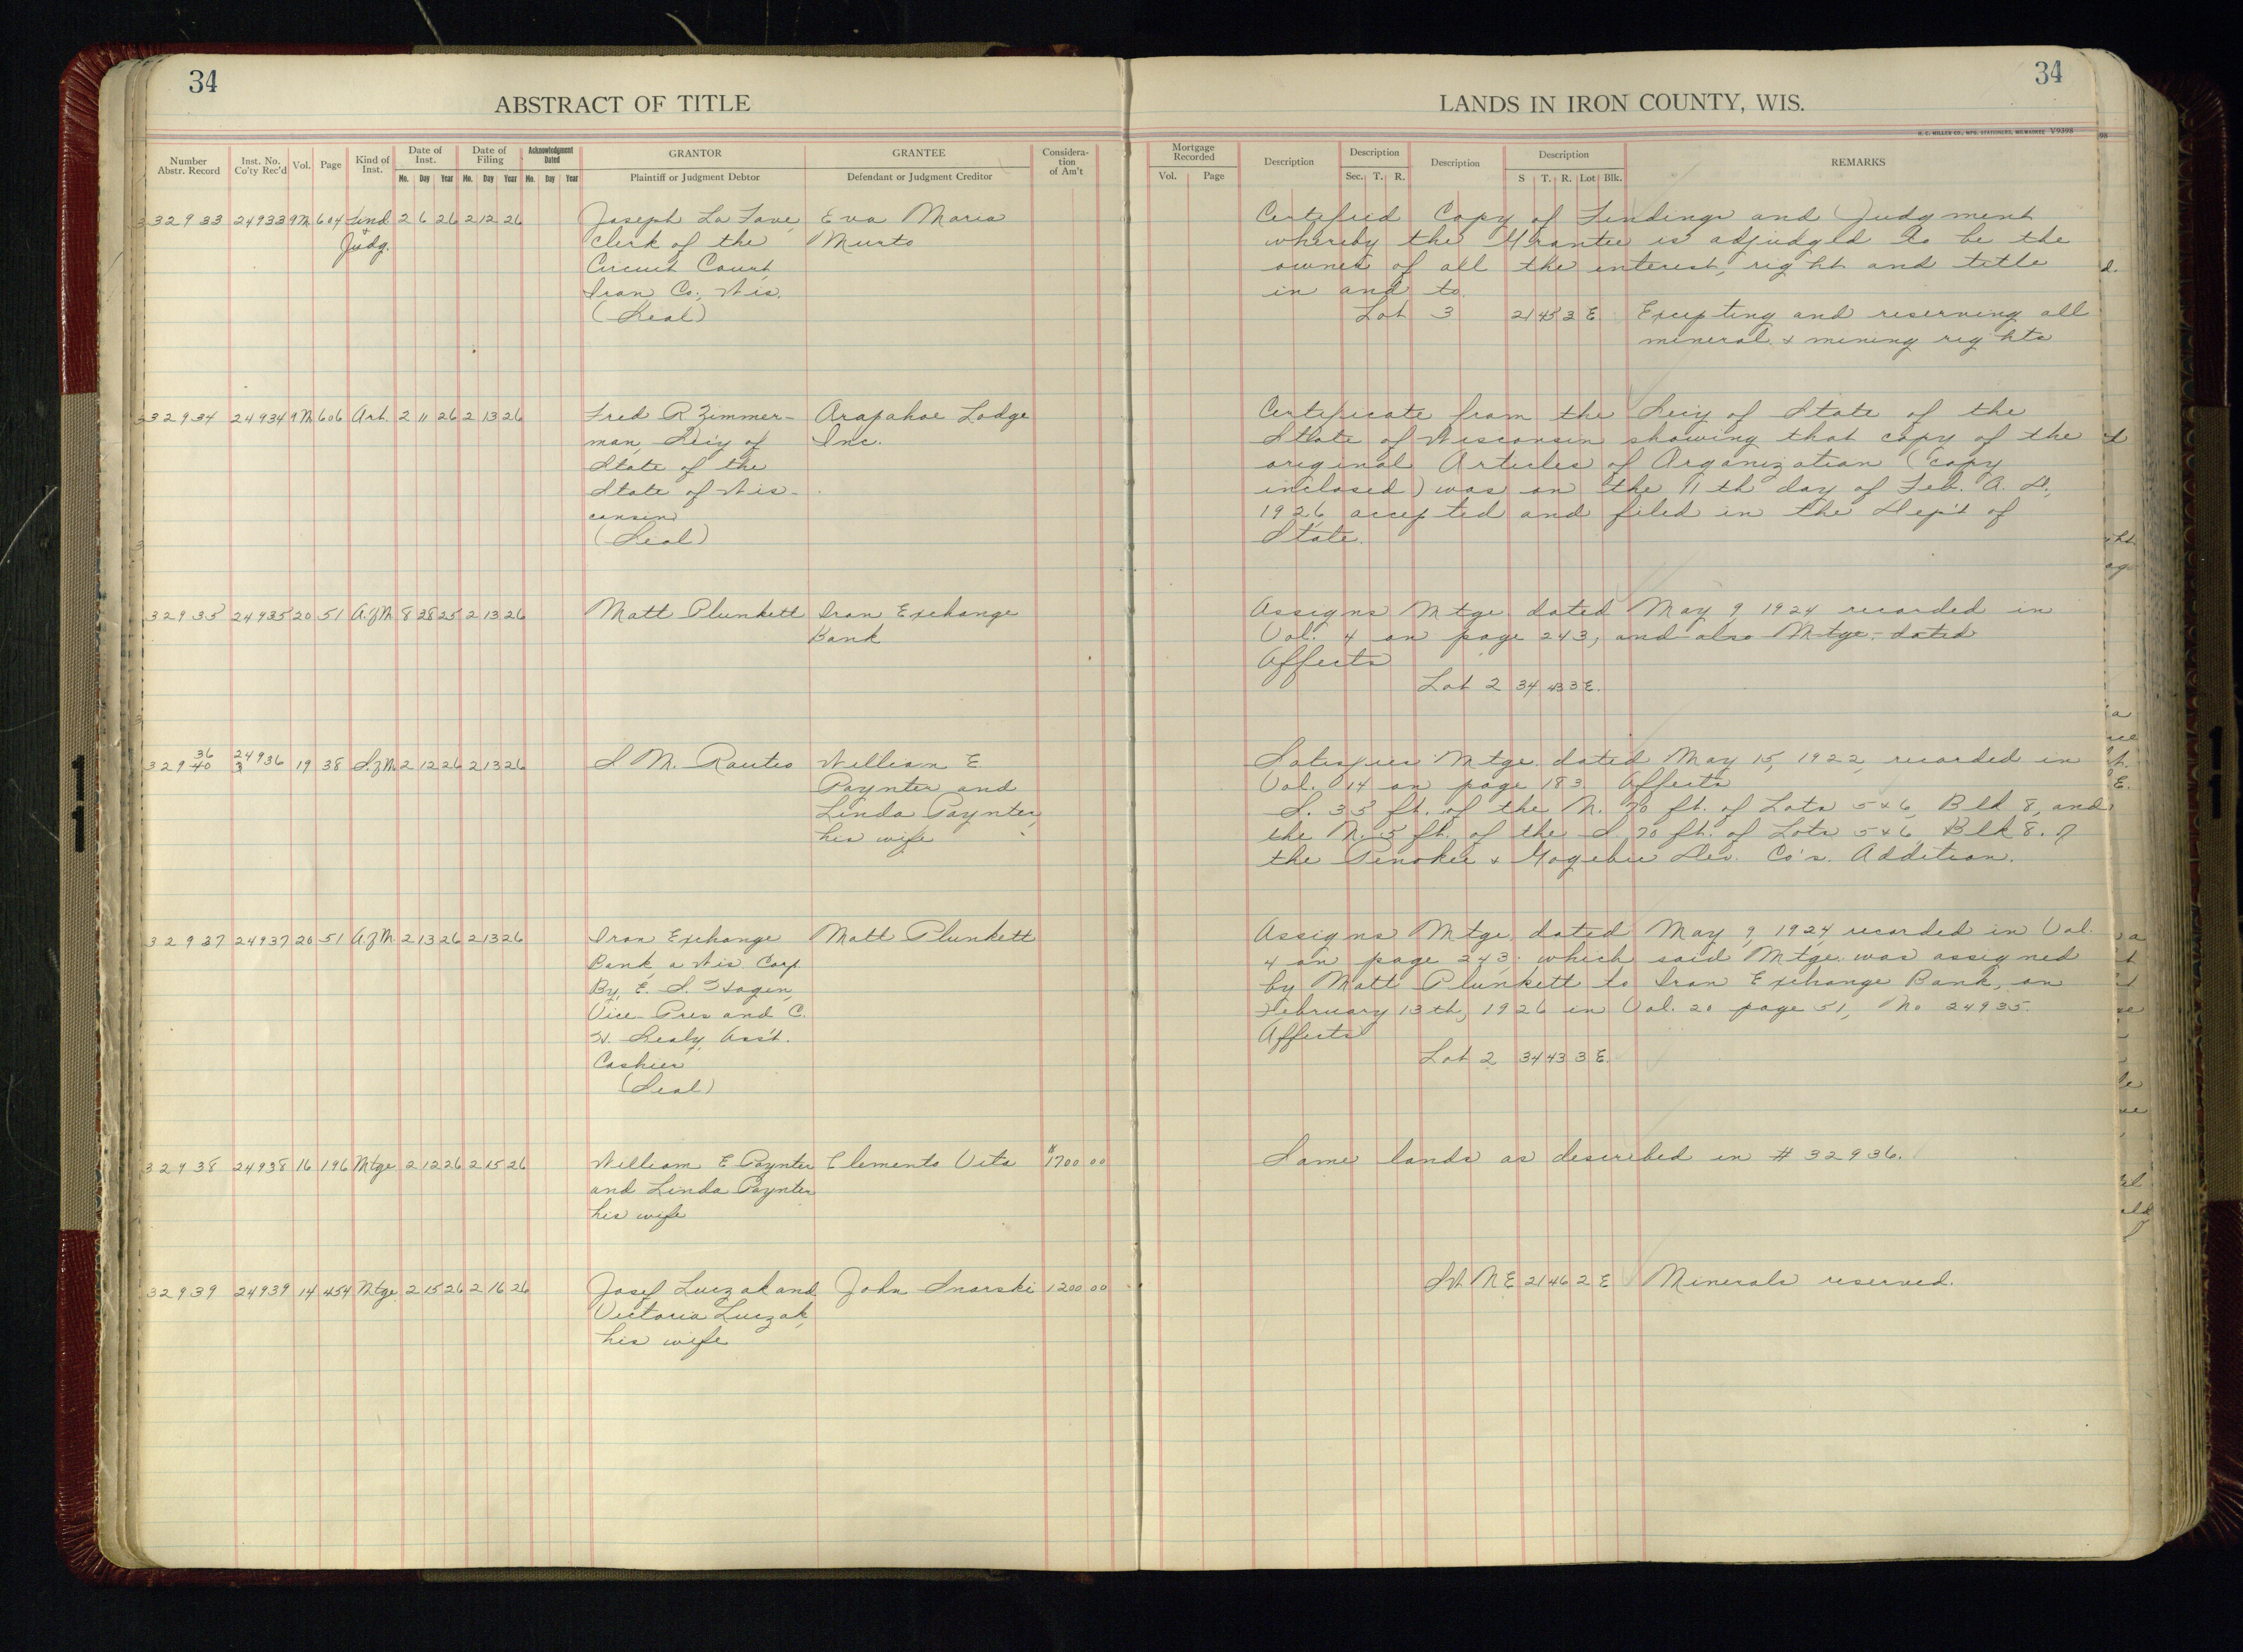 34
34
ABSTRACT OF TITLE
LANDS IN IRON COUNTY, WIS.
H. C. MILLER CO., MFG. STATIONERS, MILWAUKEE V9398
98
Number Abstr. Record
Inst. No. Co'ty Rec'd
Vol.
Page
Kind of Inst.
Date of Inst.
Mo. Day Year
Date of Filing
Mo. Day Year
Acknowledgment Dated
Mo. Day Year
GRANTOR
Plaintiff or Judgment Debtor
GRANTEE
Defendant or Judgment Creditor
Considera-
tion
of Am't
Mortgage Recorded
Vol. Page
Description
Description
Sec. T. R.
Description
Description
S T. R. Lot Blk.
REMARKS
32933 24933 9M 604 Find 2 6 26 2 12 26 Joseph La Fave, Eva Maria
+
Judg. Clerk of the Murto
Circuit Court,
Iron Co., Wis.
(Seal)
Certified Copy of Findings and Judgment
whereby the Grantee is adjudged to be the
owner of all the interest, right and title
in and to.
Lot 3 21 45 3 E Excepting and reserving all
mineral & mining rights
32934 24934 9M 606 Art. 2 11 26 2 13 26 Fred R Zimmer- Arapahoe Lodge
man, Sec'y of Inc.
State of the
State of Wis-
consin
(Seal)
Certificate from the Sec'y of State of the
State of Wisconsin showing that copy of the
original Articles of Organization (copy
inclosed) was on the 11th day of Feb. A. D.,
1926 accepted and filed in the Dep't of
State.
32935 24935 20 51 A.of M. 8 28 25 2 13 26 Matt Plunkett Iron Exchange
Bank
Assigns Mtge. dated May 9, 1924 recorded in
Vol. 4 on page 243, and also Mtge. dated
Affects
Lot 2 34 43 3 E.
36
32940 24936 19 38 S.of M. 2 12 26 2 13 26 S. M. Rautio William E.
3
Paynter and
Linda Paynter,
his wife
Satisfies Mtge. dated May 15, 1922, recorded in
Vol. 14 on page 183 Affects
S. 35 ft. of the N. 70 ft. of Lots 5 & 6, Blk 8, and
the N. 5 ft. of the S. 70 ft. of Lots 5 & 6, Blk 8. of
the Penokee & Gogebic Dev. Co's. Addition.
32937 24937 20 51 A.of M. 2 13 26 2 13 26 Iron Exchange Matt Plunkett
Bank, a Wis. Corp.
By, E. S. Hagen,
Vice-Pres and C.
H. Sealy, Ass't.
Cashier
(Seal)
Assigns Mtge. dated May 9, 1924, recorded in Vol.
4 on page 243, which said Mtge. was assigned
by Matt Plunkett to Iron Exchange Bank, on
February 13th, 1926 in Vol. 20 page 51, No 24935.
Affects
Lot 2 34 43 3 E.
32938 24938 16 196 Mtge 2 12 26 2 15 26 William E Paynter Clemento Vita $1700 00
and Linda Paynter
his wife
Same lands as described in # 32936.
32939 24939 14 454 Mtge. 2 15 26 2 16 26 Josef Luczak and John Snarski 1200 00
Victoria Luczak,
his wife
NE 21 46 2 E Minerals reserved.